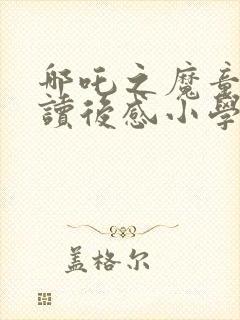 哪吒之魔童
讀後感小學
盖格尔